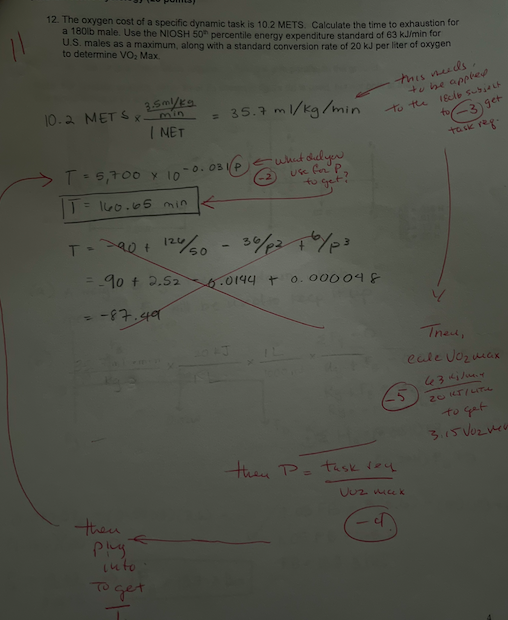 12. The oxygen cost of a specific dynamic task is 10.2 METS. Calculate the time to exhaustion for
a 180lb male. Use the NIOSH 50th percentile energy expenditure standard of 63 kJ/min for
U.S. males as a maximum, along with a standard conversion rate of 20 kJ per liter of oxygen
to determine VO2 Max.
11
10.2 METS x 3.5ml/kg/min / 1 MET = 35.7 ml/kg/min
this needs
to be applied
to the 180lb subject
to -3 get
task req.
T = 5,700 x 10^-0.031P
-2
what did you
use for P
to get?
T = 160.65 min
T = -90 + 126/50 - 36/p2 + 6/p3
= -90 + 2.52 - 0.0144 + 0.000048
= -87.49
Then,
calc VO2 max
-5
63 kJ/min
20 kJ/liter
to get
3.15 VO2 max
then P = task req
VO2 max
-4
then
plug
into
to get
T
4